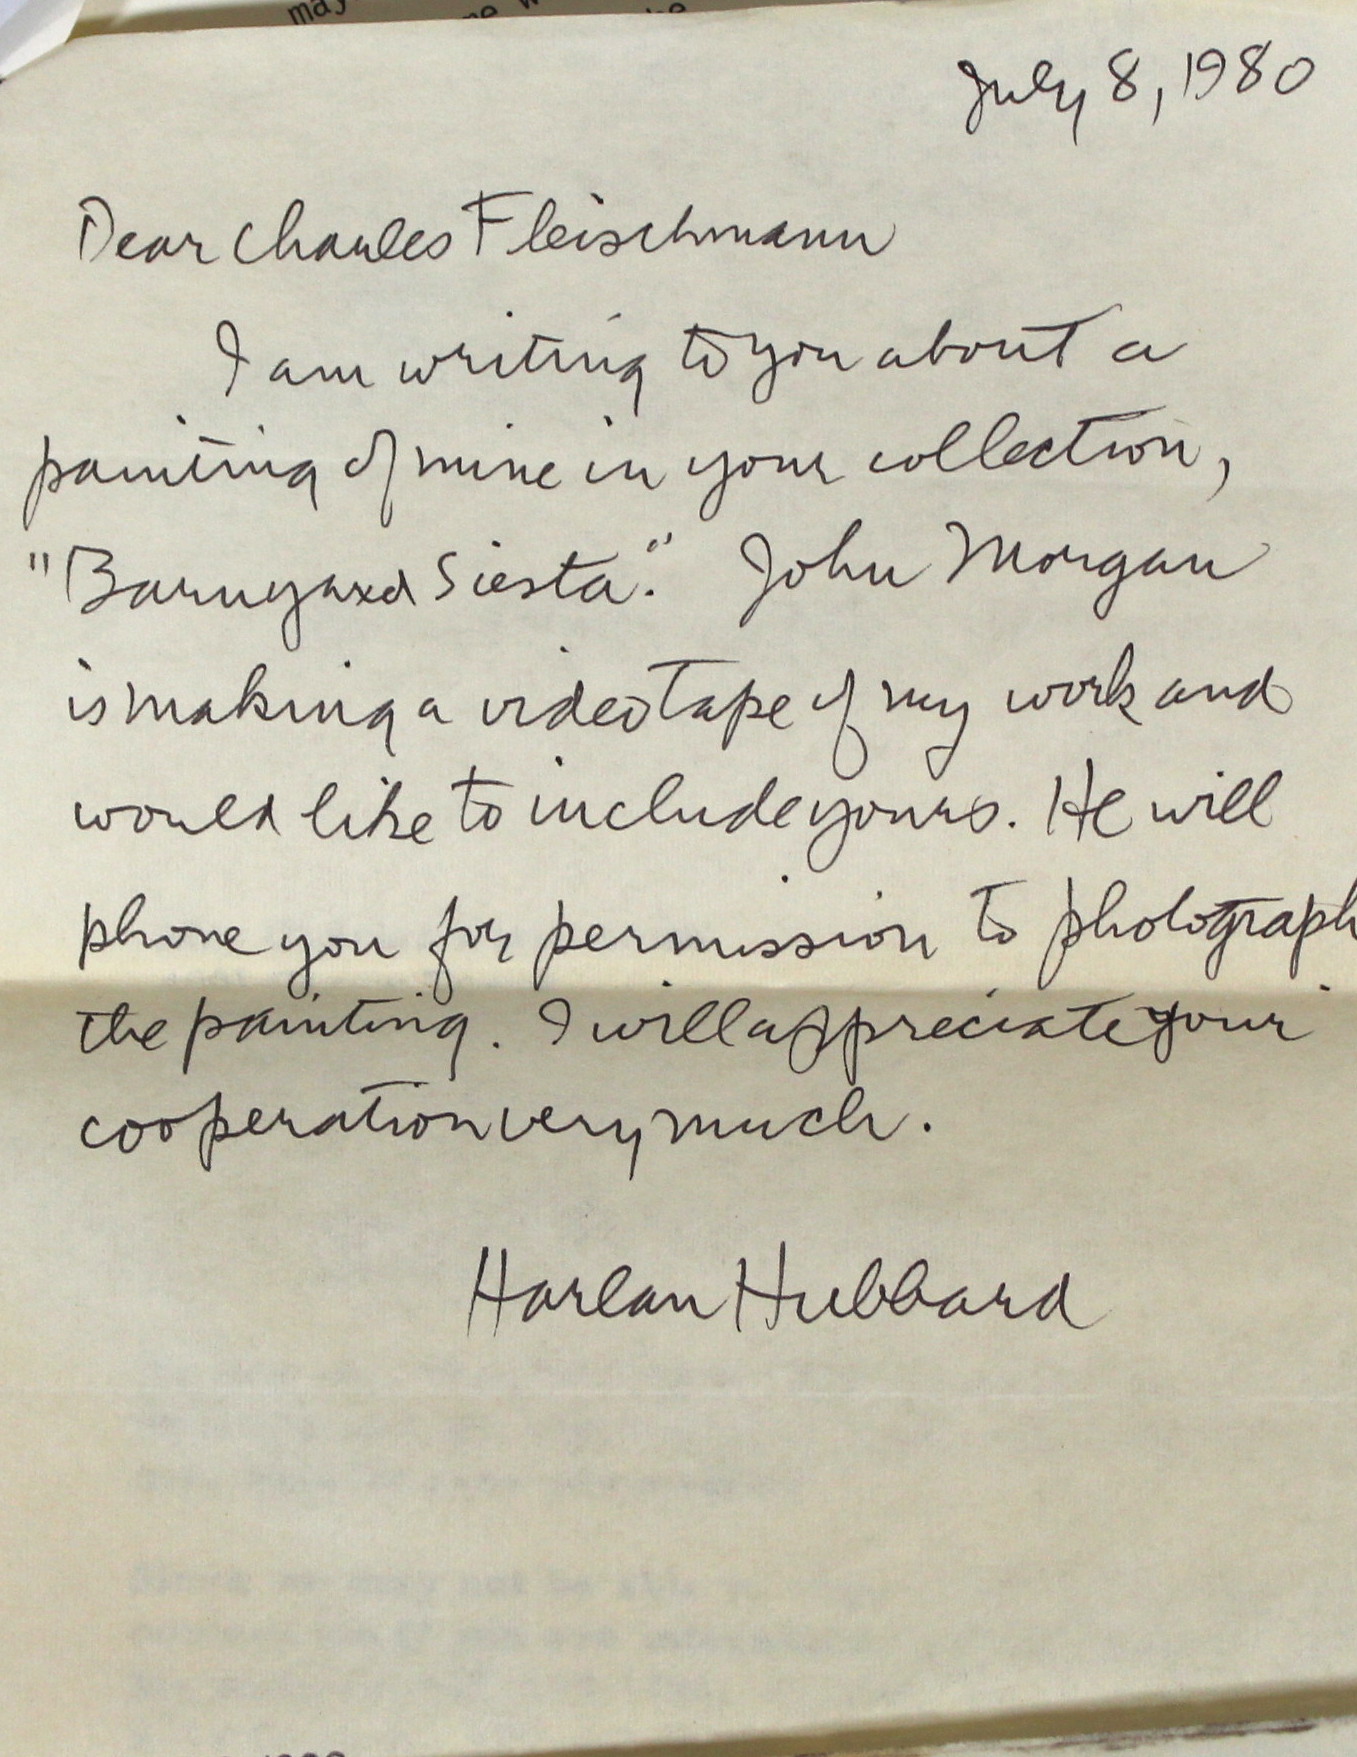 may
July 8, 1980
Dear Charles Fleischmann
I am writing to you about a
painting of mine in your collection,
"Barnyard Siesta." John Morgan
is making a video tape of my work and
would like to include yours. He will
phone you for permission to photograph
the painting. I will appreciate your
cooperation very much.
Harlan Hubbard